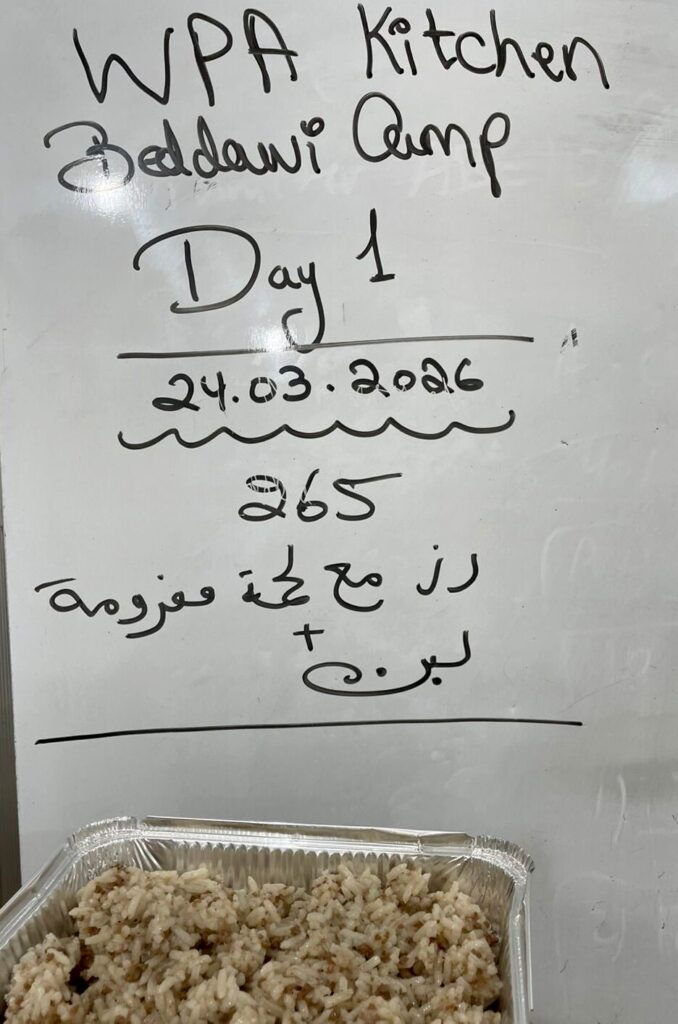 WPA Kitchen
Beddawi Camp
Day 1
24.03.2026
265
رز مع لحمة مفرومة
+
لبن